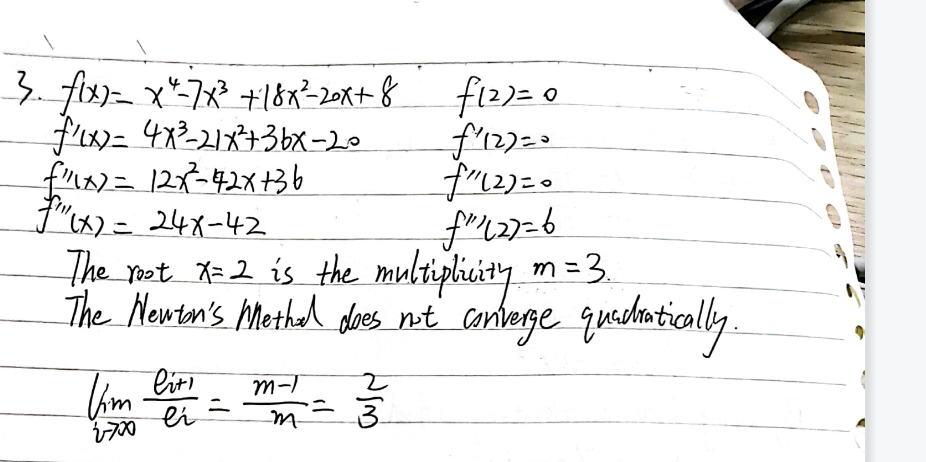 3. f(x) = x⁴-7x³+18x²-20x+8 f(2)=0
f'(x) = 4x³-21x²+36x-20 f'(2)=0
f''(x) = 12x²-42x+36 f''(2)=0
f'''(x) = 24x-42 f'''(2)=6
The root x=2 is the multiplicity m=3.
The Newton's Method does not converge quadratically.
lim i→∞ eᵢ₊₁/eᵢ = (m-1)/m = 2/3